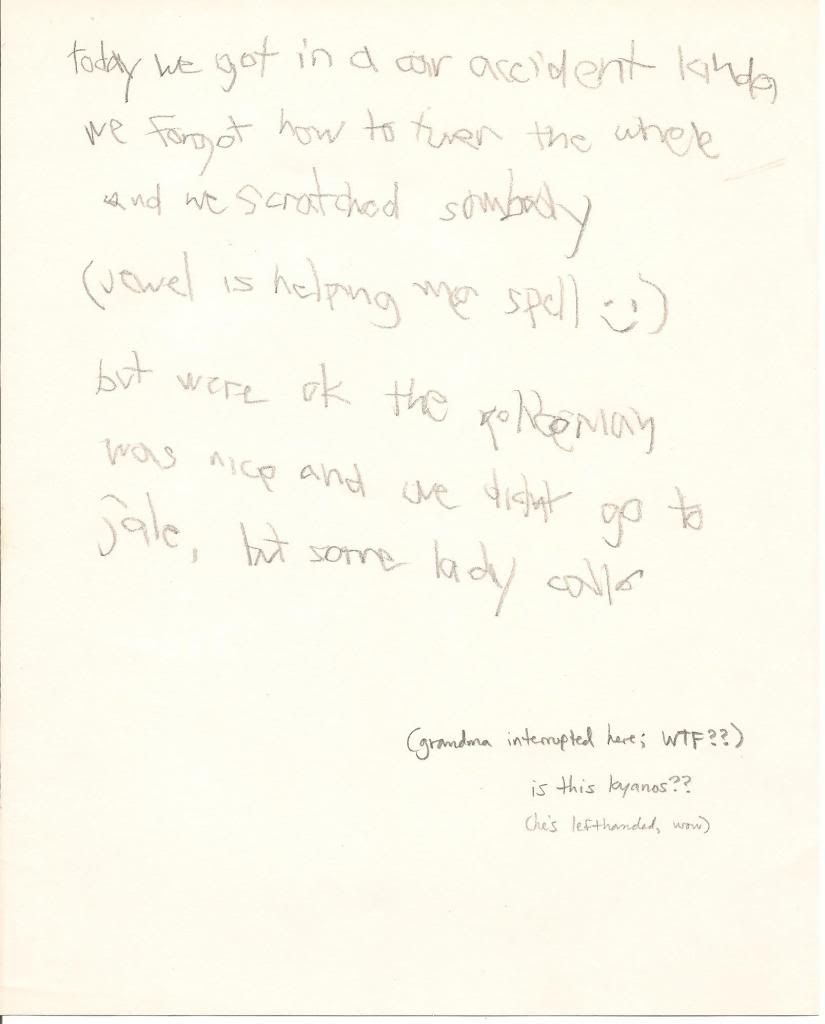 today we got in a car accident kinda
we forgot how to turen the whele
and we scratched sombody
(vowel is helping me spell :))
but were ok the policeman
was nice and we didnt go to
jale, but some lady
(grandma interrupted here; WTF??)
is this kyanos??
(he's lefthanded, wow)